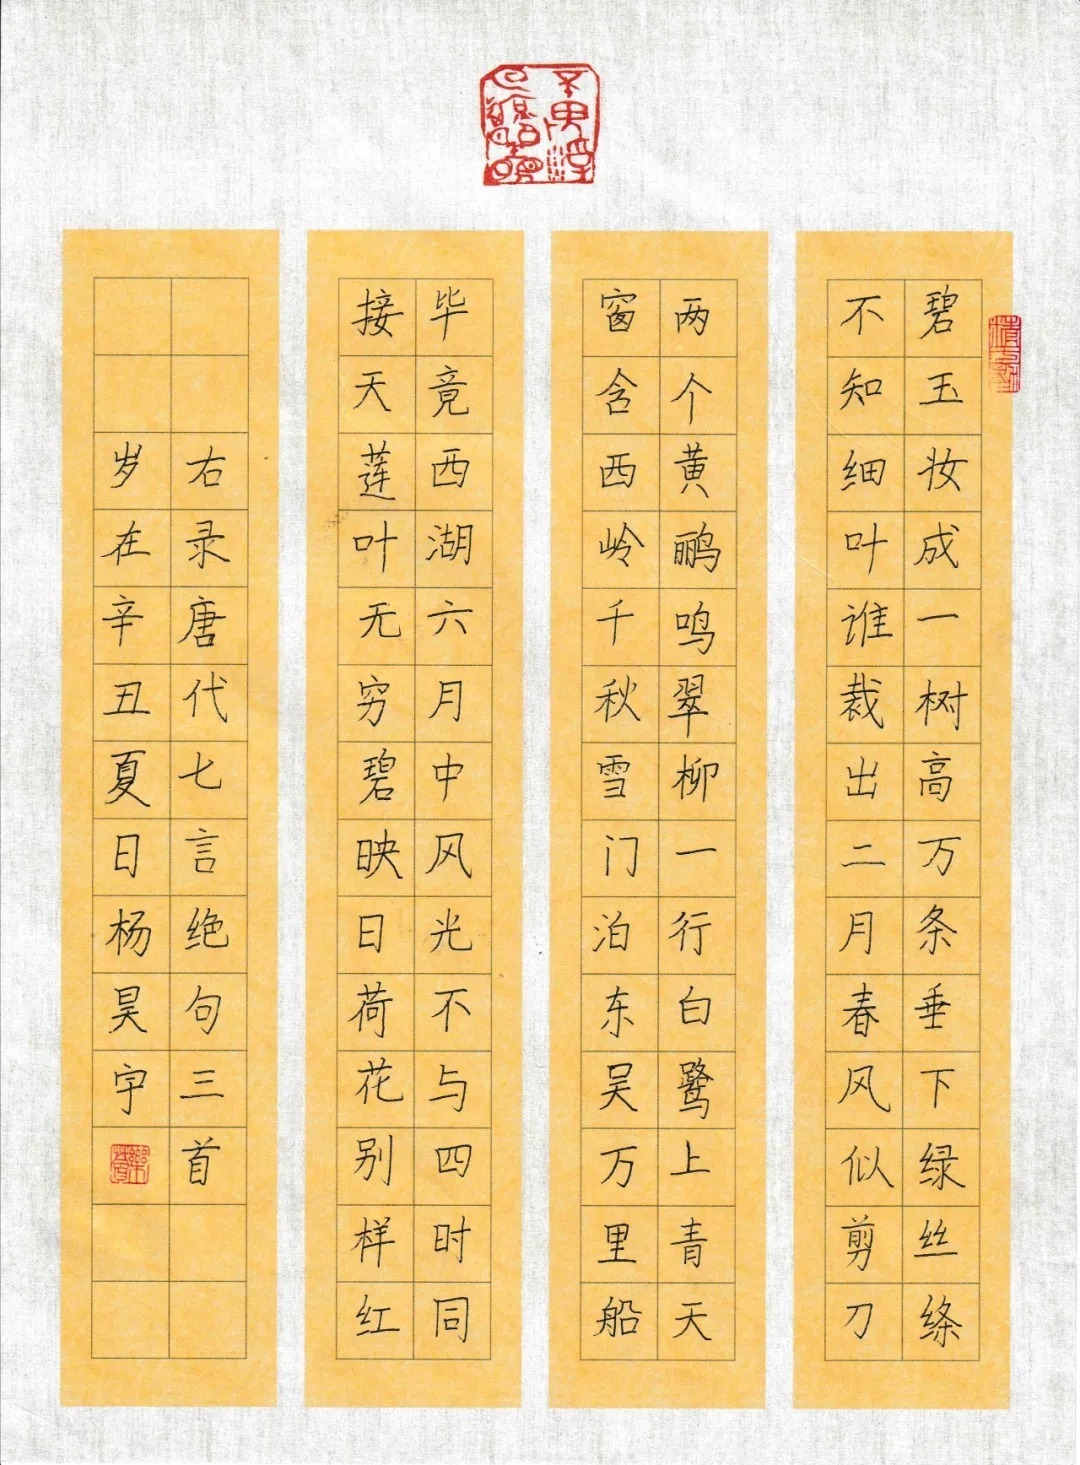 碧玉妆成一树高万条垂下绿丝绦
不知细叶谁裁出二月春风似剪刀
两个黄鹂鸣翠柳一行白鹭上青天
窗含西岭千秋雪门泊东吴万里船
毕竟西湖六月中风光不与四时同
接天莲叶无穷碧映日荷花别样红
右录唐代七言绝句三首
岁在辛丑夏日杨昊宇